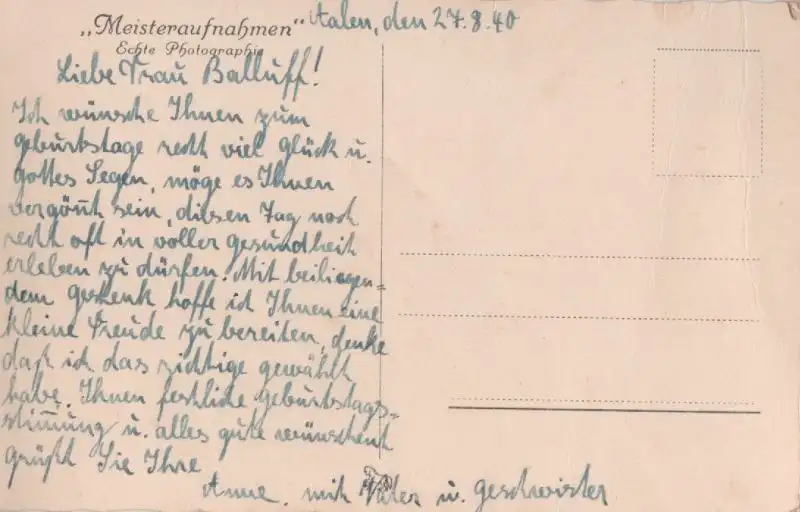 „Meisteraufnahmen“
Echte Photographie
Aalen, den 27.8.40
Liebe Frau Balluff!
Ich wünsche Ihnen zum
geburtstage recht viel glück u.
gottes Segen, möge es Ihnen
vergönnt sein, diesen Tag noch
recht oft in voller gesundheit
erleben zu dürfen! Mit beiliegen=
dem geschenk hoffe ich Ihnen eine
kleine Freude zu bereiten, denke
daß ich das richtige gewählt
habe. Ihnen festliche geburtstags=
stimmung u. alles gute wünschent
grüßt Sie Ihre
Anne, mit Vater u. geschwister